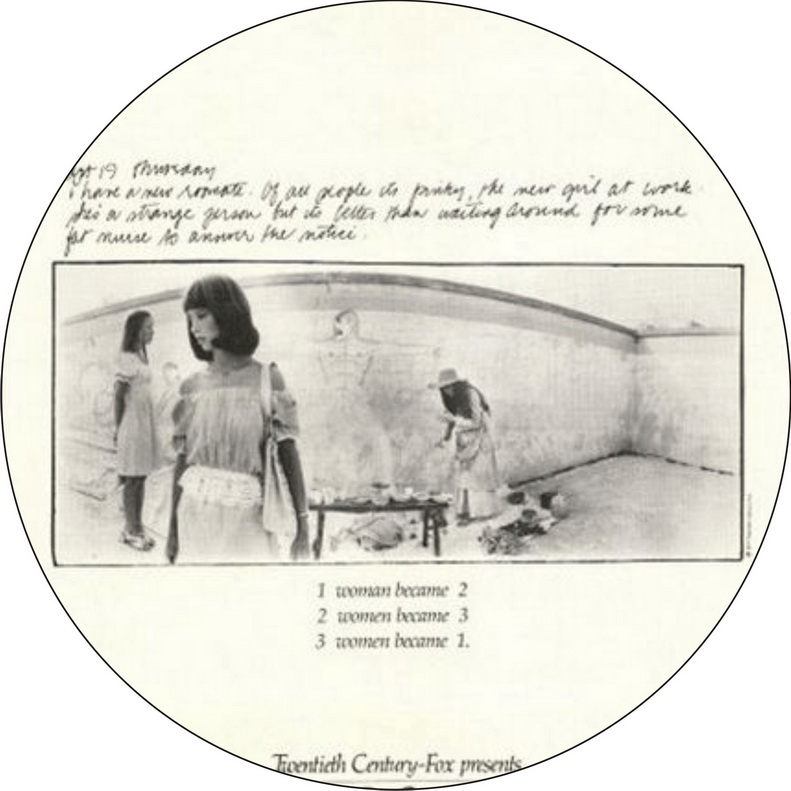 19 Thursday
I have a new romate. Of all people its pinky, the new girl at work.
she's a strange person but its better than waiting around for some
fat nurse to answer the notice.
1 woman became 2
2 women became 3
3 women became 1.
Twentieth Century-Fox presents